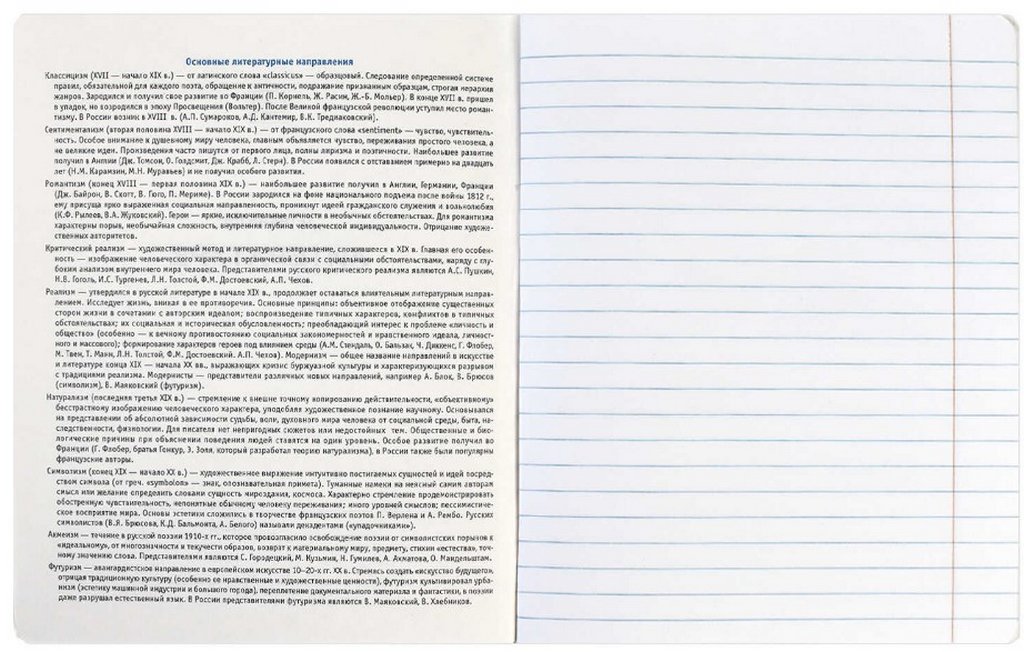 Основные литературные направления
Классицизм (XVII — начало XIX в.) — от латинского слова «classicus» — образцовый. Следование определенной системе
правил, обязательной для каждого поэта, обращение к античности, подражание признанным образцам, строгая иерархия
жанров. Зародился и получил свое развитие во Франции (П. Корнель, Ж. Расин, Ж.-Б. Мольер). В конце XVII в. пришел
в упадок, но возродился в эпоху Просвещения (Вольтер). После Великой французской революции уступил место роман-
тизму. В России возник в XVIII в. (А.П. Сумароков, А.Д. Кантемир, В.К. Тредиаковский).
Сентиментализм (вторая половина XVIII — начало XIX в.) — от французского слова «sentiment» — чувство, чувствитель-
ность. Особое внимание к душевному миру человека, главным объявляется чувство, переживания простого человека, а
не великие идеи. Произведения часто пишутся от первого лица, полны лиризма и поэтичности. Наибольшее развитие
получил в Англии (Дж. Томсон, О. Голдсмит, Дж. Крабб, Л. Стерн). В России появился с отставанием примерно на двадцать
лет (Н.М. Карамзин, М.Н. Муравьев) и не получил особого развития.
Романтизм (конец XVIII — первая половина XIX в.) — наибольшее развитие получил в Англии, Германии, Франции
(Дж. Байрон, В. Скотт, В. Гюго, П. Мериме). В России зародился на фоне национального подъема после войны 1812 г.,
ему присуща ярко выраженная социальная направленность, проникнут идеей гражданского служения и вольнолюбия
(К.Ф. Рылеев, В.А. Жуковский). Герои — яркие, исключительные личности в необычных обстоятельствах. Для романтизма
характерны порыв, необычайная сложность, внутренняя глубина человеческой индивидуальности. Отрицание художе-
ственных авторитетов.
Критический реализм — художественный метод и литературное направление, сложившееся в XIX в. Главная его особен-
ность — изображение человеческого характера в органической связи с социальными обстоятельствами, наряду с глу-
боким анализом внутреннего мира человека. Представителями русского критического реализма являются А.С. Пушкин,
Н.В. Гоголь, И.С. Тургенев, Л.Н. Толстой, Ф.М. Достоевский, А.П. Чехов.
Реализм — утвердился в русской литературе в начале XIX в., продолжает оставаться влиятельным литературным направ-
лением. Исследует жизнь, вникая в ее противоречия. Основные принципы: объективное отображение существенных
сторон жизни в сочетании с авторским идеалом; воспроизведение типичных характеров, конфликтов в типичных
обстоятельствах; их социальная и историческая обусловленность; преобладающий интерес к проблеме «личность и
общество» (особенно — к вечному противостоянию социальных закономерностей и нравственного идеала, личност-
ного и массового); формирование характеров героев под влиянием среды (А.М. Стендаль, О. Бальзак, Ч. Диккенс, Г. Флобер,
М. Твен, Т. Манн, Л.Н. Толстой, Ф.М. Достоевский, А.П. Чехов). Модернизм — общее название направлений в искусстве
и литературе конца XIX — начала XX вв., выражающих кризис буржуазной культуры и характеризующихся разрывом
с традициями реализма. Модернисты — представители различных новых направлений, например А. Блок, В. Брюсов
(символизм), В. Маяковский (футуризм).
Натурализм (последняя треть XIX в.) — стремление к внешне точному копированию действительности, «объективному»
бесстрастному изображению человеческого характера, уподобляя художественное познание научному. Основывался
на представлении об абсолютной зависимости судьбы, воли, духовного мира человека от социальной среды, быта, на-
следственности, физиологии. Для писателя нет непригодных сюжетов или недостойных тем. Общественные и био-
логические причины при объяснении поведения людей ставятся на один уровень. Особое развитие получил во
Франции (Г. Флобер, братья Гонкур, Э. Золя, который разработал теорию натурализма), в России также были популярны
французские авторы.
Символизм (конец XIX — начало XX в.) — художественное выражение интуитивно постигаемых сущностей и идей посред-
ством символа (от греч. «symbolon» — знак, опознавательная примета). Туманные намеки на неясный самим авторам
смысл или желание определить словами сущность мироздания, космоса. Характерно стремление продемонстрировать
обостренную чувствительность, непонятные обычному человеку переживания; много уровней смыслов; пессимистиче-
ское восприятие мира. Основы эстетики сложились в творчестве французских поэтов П. Верлена и А. Рембо. Русских
символистов (В.Я. Брюсова, К.Д. Бальмонта, А. Белого) называли декадентами («упадочниками»).
Акмеизм — течение в русской поэзии 1910-х гг., которое провозгласило освобождение поэзии от символистских порывов к
«идеальному», от многозначности и текучести образов, возврат к материальному миру, предмету, стихии «естества», точ-
ному значению слова. Представителями являются С. Городецкий, М. Кузьмин, Н. Гумилев, А. Ахматова, О. Мандельштам.
Футуризм — авангардистское направление в европейском искусстве 10–20-х гг. XX в. Стремясь создать «искусство будущего»,
отрицая традиционную культуру (особенно ее нравственные и художественные ценности), футуризм культивировал урба-
низм (эстетику машинной индустрии и большого города), переплетение документального материала и фантастики, в поэзии
даже разрушал естественный язык. В России представителями футуризма являются В. Маяковский, В. Хлебников.